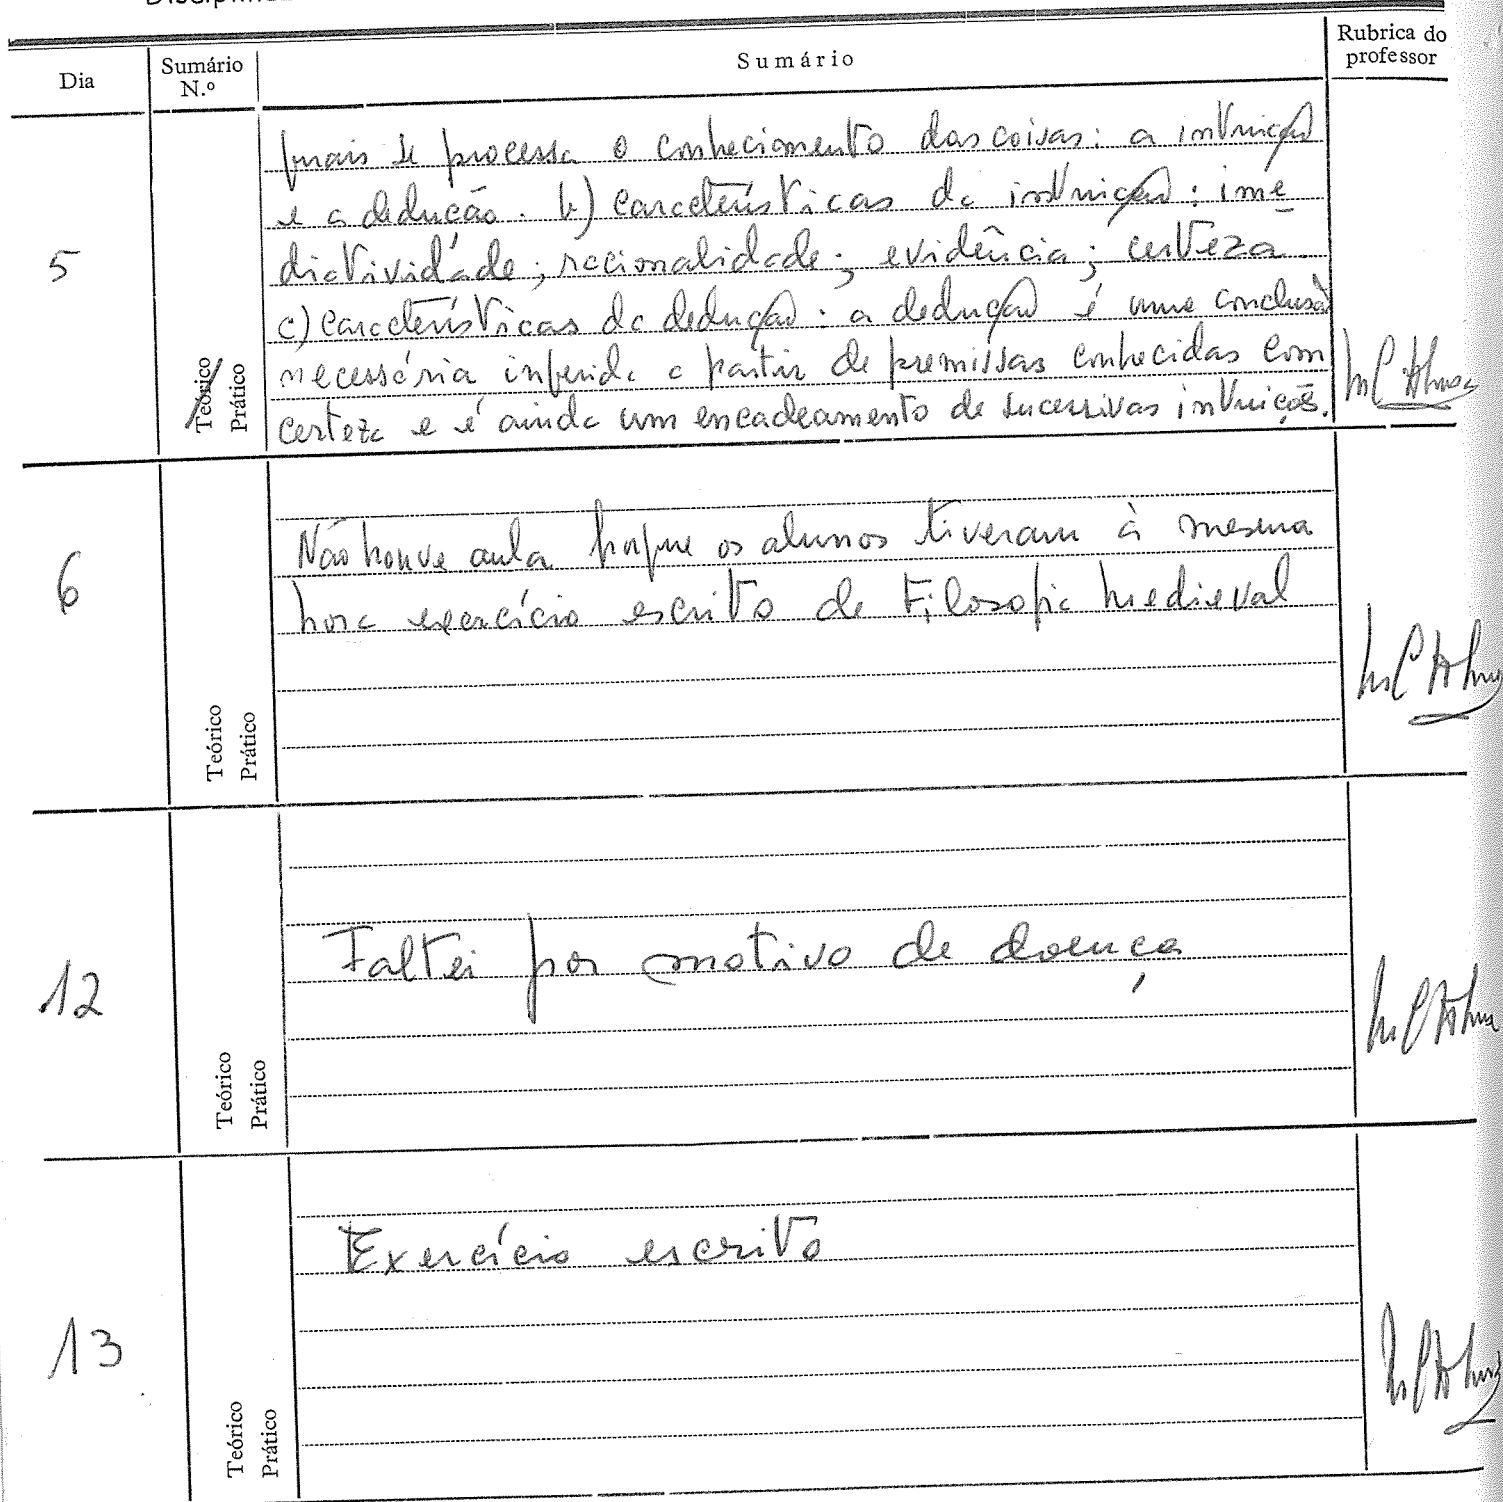 Dia
Sumário N.º
Sumário
Rubrica do professor
5
Teórico
Prático
quais se processa o conhecimento das coisas: a intuição
e a dedução. b) Características da intuição: ime
diatividade; racionalidade; evidência; certeza.
c) Características da dedução: a dedução é uma conclusão
necessária inferida a partir de premissas conhecidas com
certeza e é ainda um encadeamento de sucessivas intuições.
6
Teórico
Prático
Não houve aula porque os alunos tiveram à mesma
hora exercício escrito de Filosofia Medieval
12
Teórico
Prático
Faltei por motivo de doença
13
Teórico
Prático
Exercício escrito